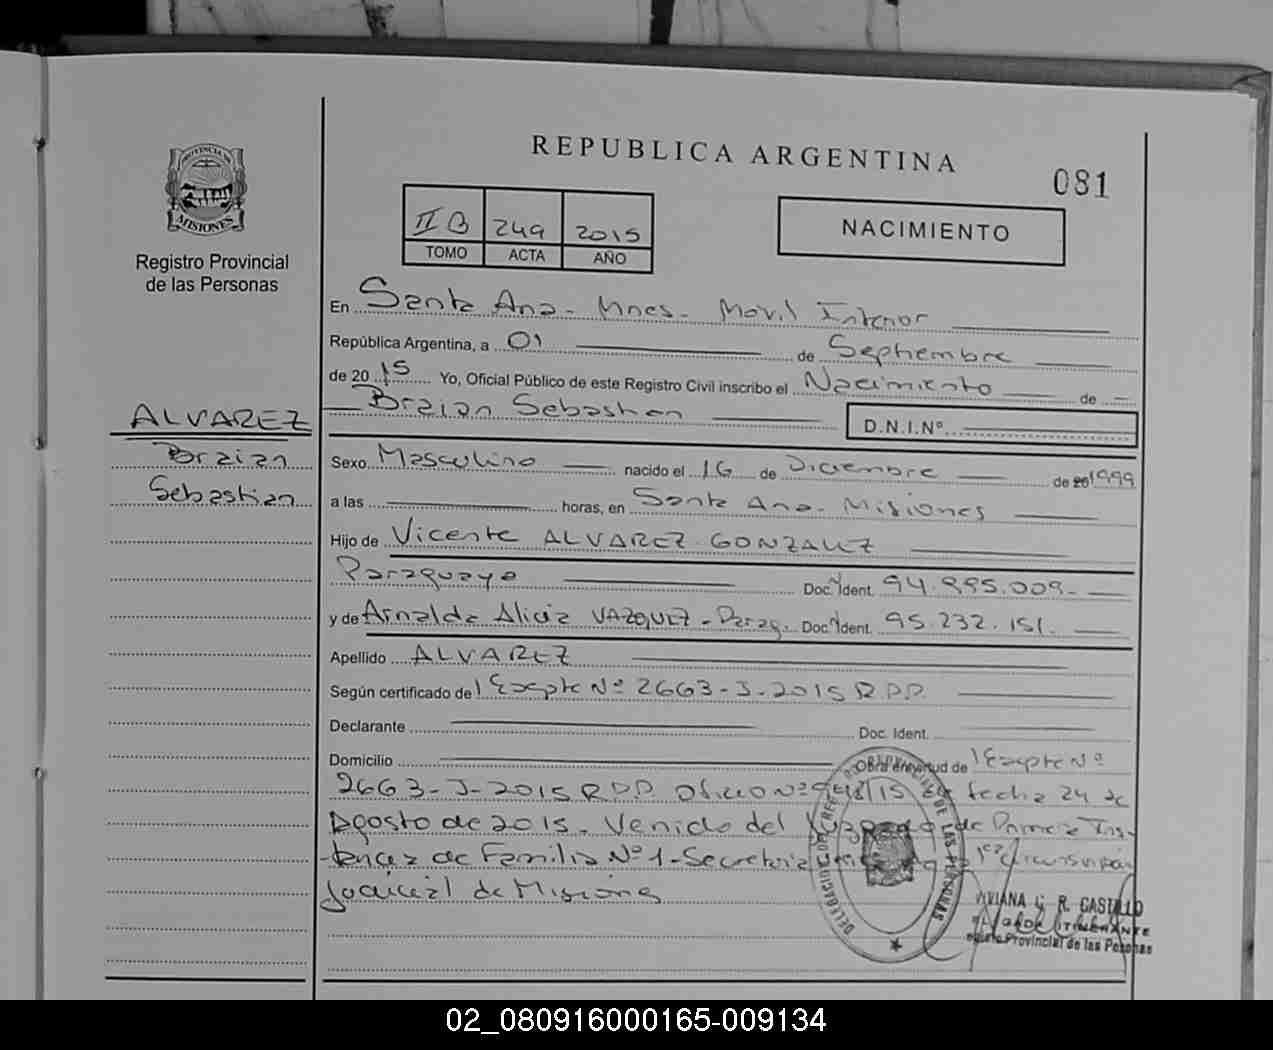 REPUBLICA ARGENTINA
081
PROVINCIA DE
MISIONES
Registro Provincial
de las Personas
II B 249 2015
TOMO ACTA AÑO
NACIMIENTO
En Santa Ana - Mnes - Movil Interior
República Argentina, a 01 de Septiembre
de 2015 Yo, Oficial Público de este Registro Civil inscribo el Nacimiento de
Braian Sebastian
D.N.I.Nº
ALVAREZ
Braian
Sebastian
Sexo Masculino nacido el 16 de Diciembre de 20 1999
a las horas, en Santa Ana - Misiones
Hijo de Vicente ALVAREZ GONZALEZ
Paraguayo Doc. Ident. 94.995.009-
y de Arnalda Alicia VAZQUEZ - Parag. Doc. Ident. 95.232.151.
Apellido ALVAREZ
Según certificado de Expte Nº 2663-J-2015 R.P.P.
Declarante Doc. Ident.
Domicilio Obra en virtud de Expte Nº
2663-J-2015 R.P.P. Oficio Nº /15 de fecha 24 de
Agosto de 2015. Venido del Juzgado de Primera Ins-
tancia de Familia Nº 1 - Secretaria 1ra Circunscripción
Judicial de Misiones
DELEGACION DE LAS PERSONAS
VIVIANA R. CASTILLO
ITINERANTE
Provincial de las Personas
02_080916000165-009134